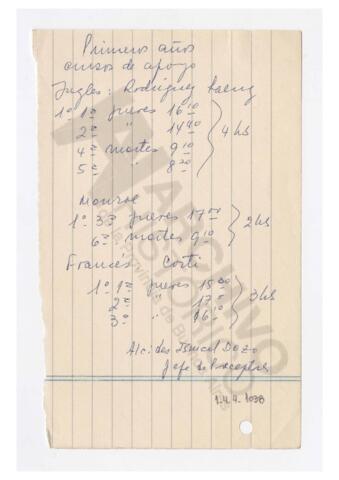 Primeros años
cursos de apoyo
Ingles: Rodriguez
1º 1ª jueves 16 10
2ª " 14 40
4ª martes 9 10
5ª " 8 20
4 hs
Monroe
1º 3ª jueves 17
6ª martes 9 10
2 hs
Francés Corti
1º 1ª jueves 15
2ª " 17
3ª " 16 10
3 hs
Alcides Ismael Dozo
Jefe de Preceptores
1.4.4.1038
ARCHIVO
HISTORICO
de la Provincia de Buenos Aires